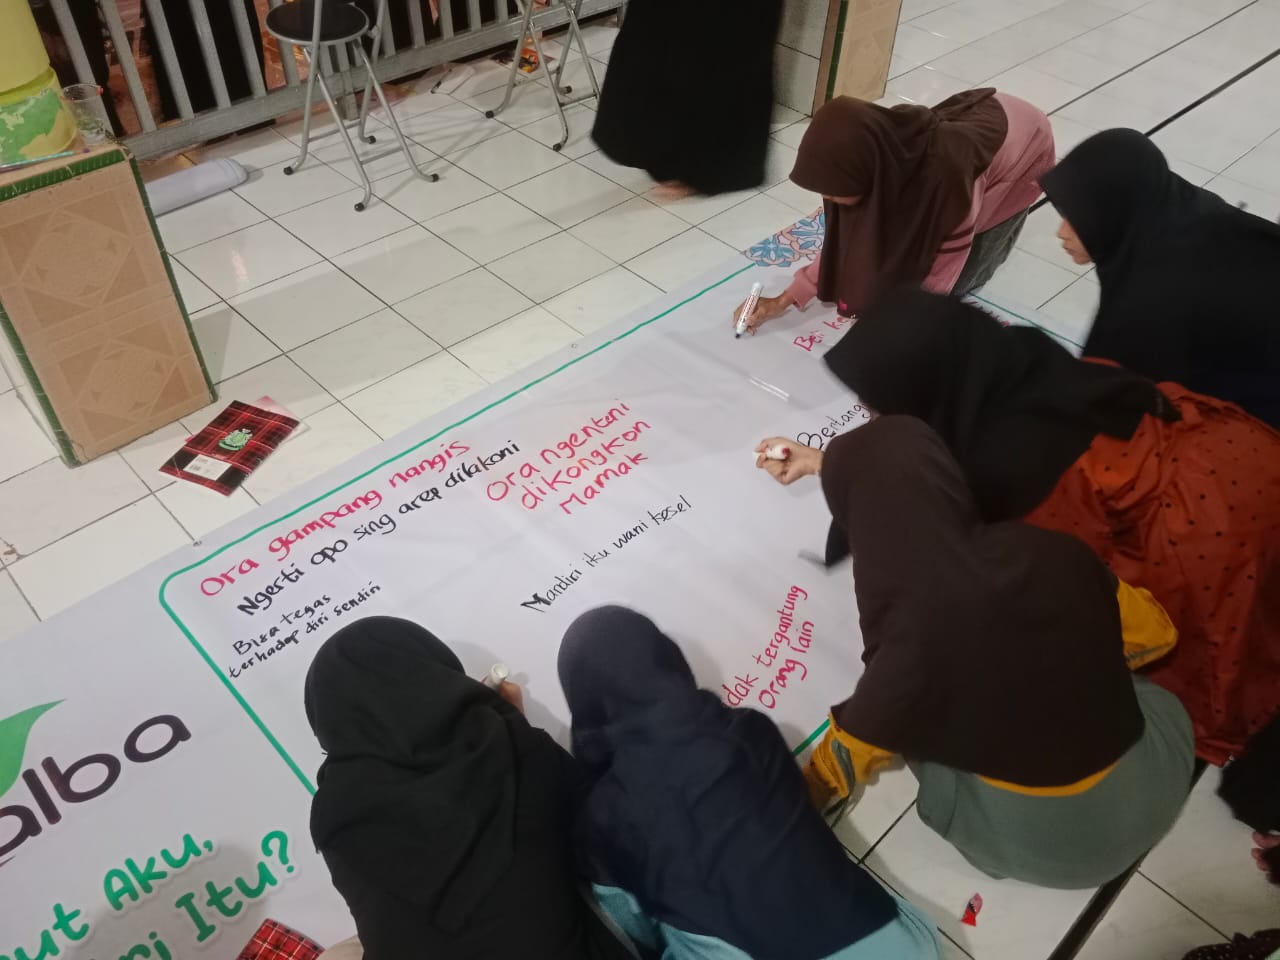 Ora gampang nangis
Ngerti opo sing arep dilakoni
Bisa tegas
terhadap diri sendiri
Ora ngenteni
dikongkon
Mamak
Mandiri iku wani kesel
tergantung
Orang lain
Beli
Aku,
Itu?